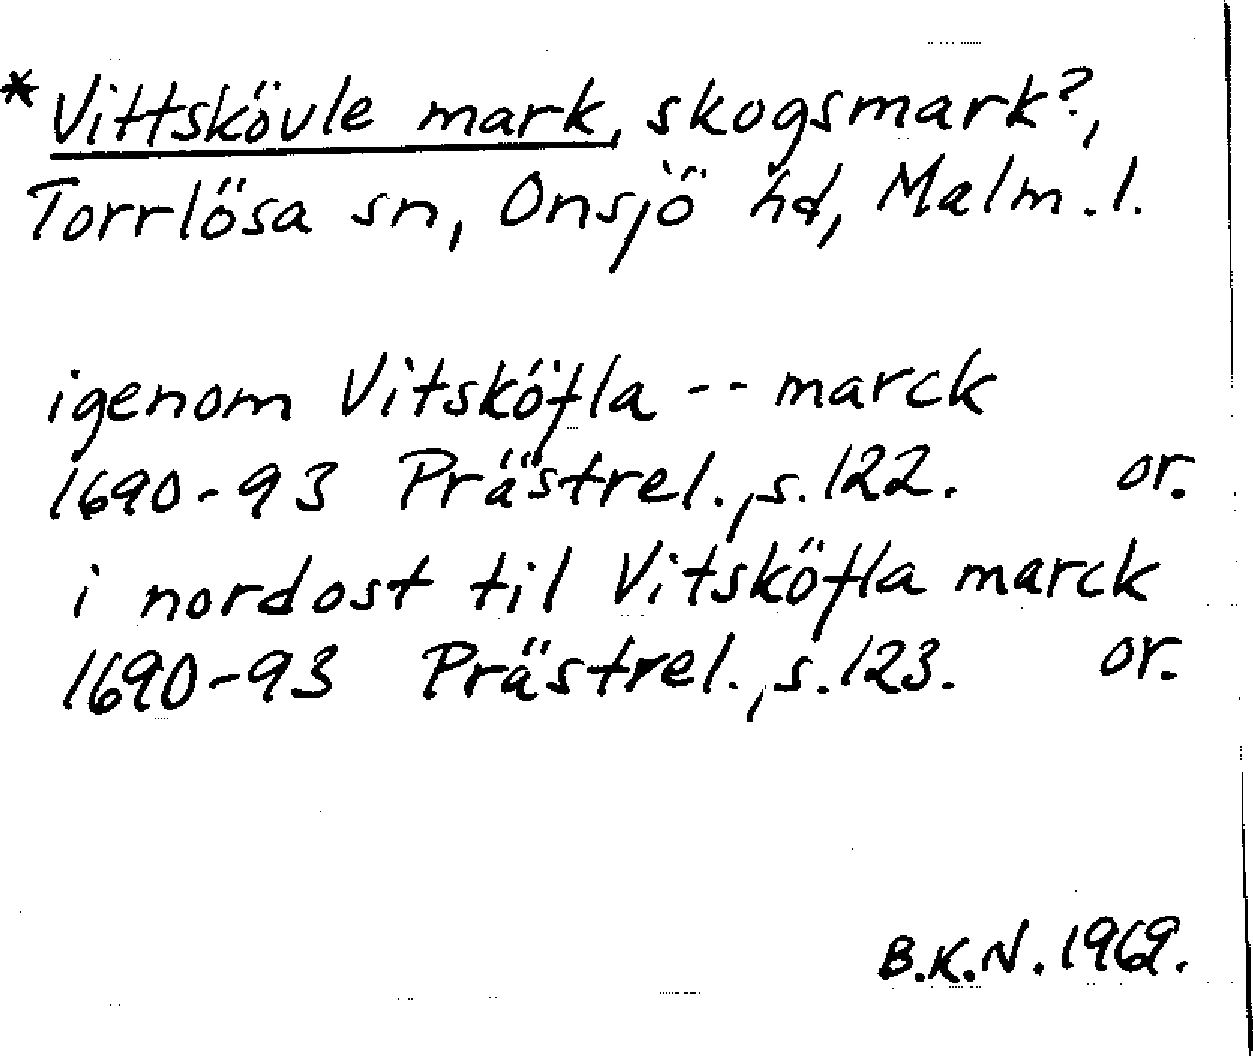 *Vittskövle mark, skogsmark?,
Torrlösa sn, Onsjö hd, Malm. l.
igenom Vitsköfla -- marck
1690-93 Prästrel., s. 122. or.
i nordost til Vitsköfla marck
1690-93 Prästrel., s. 123. or.
B.K.N. 1969.